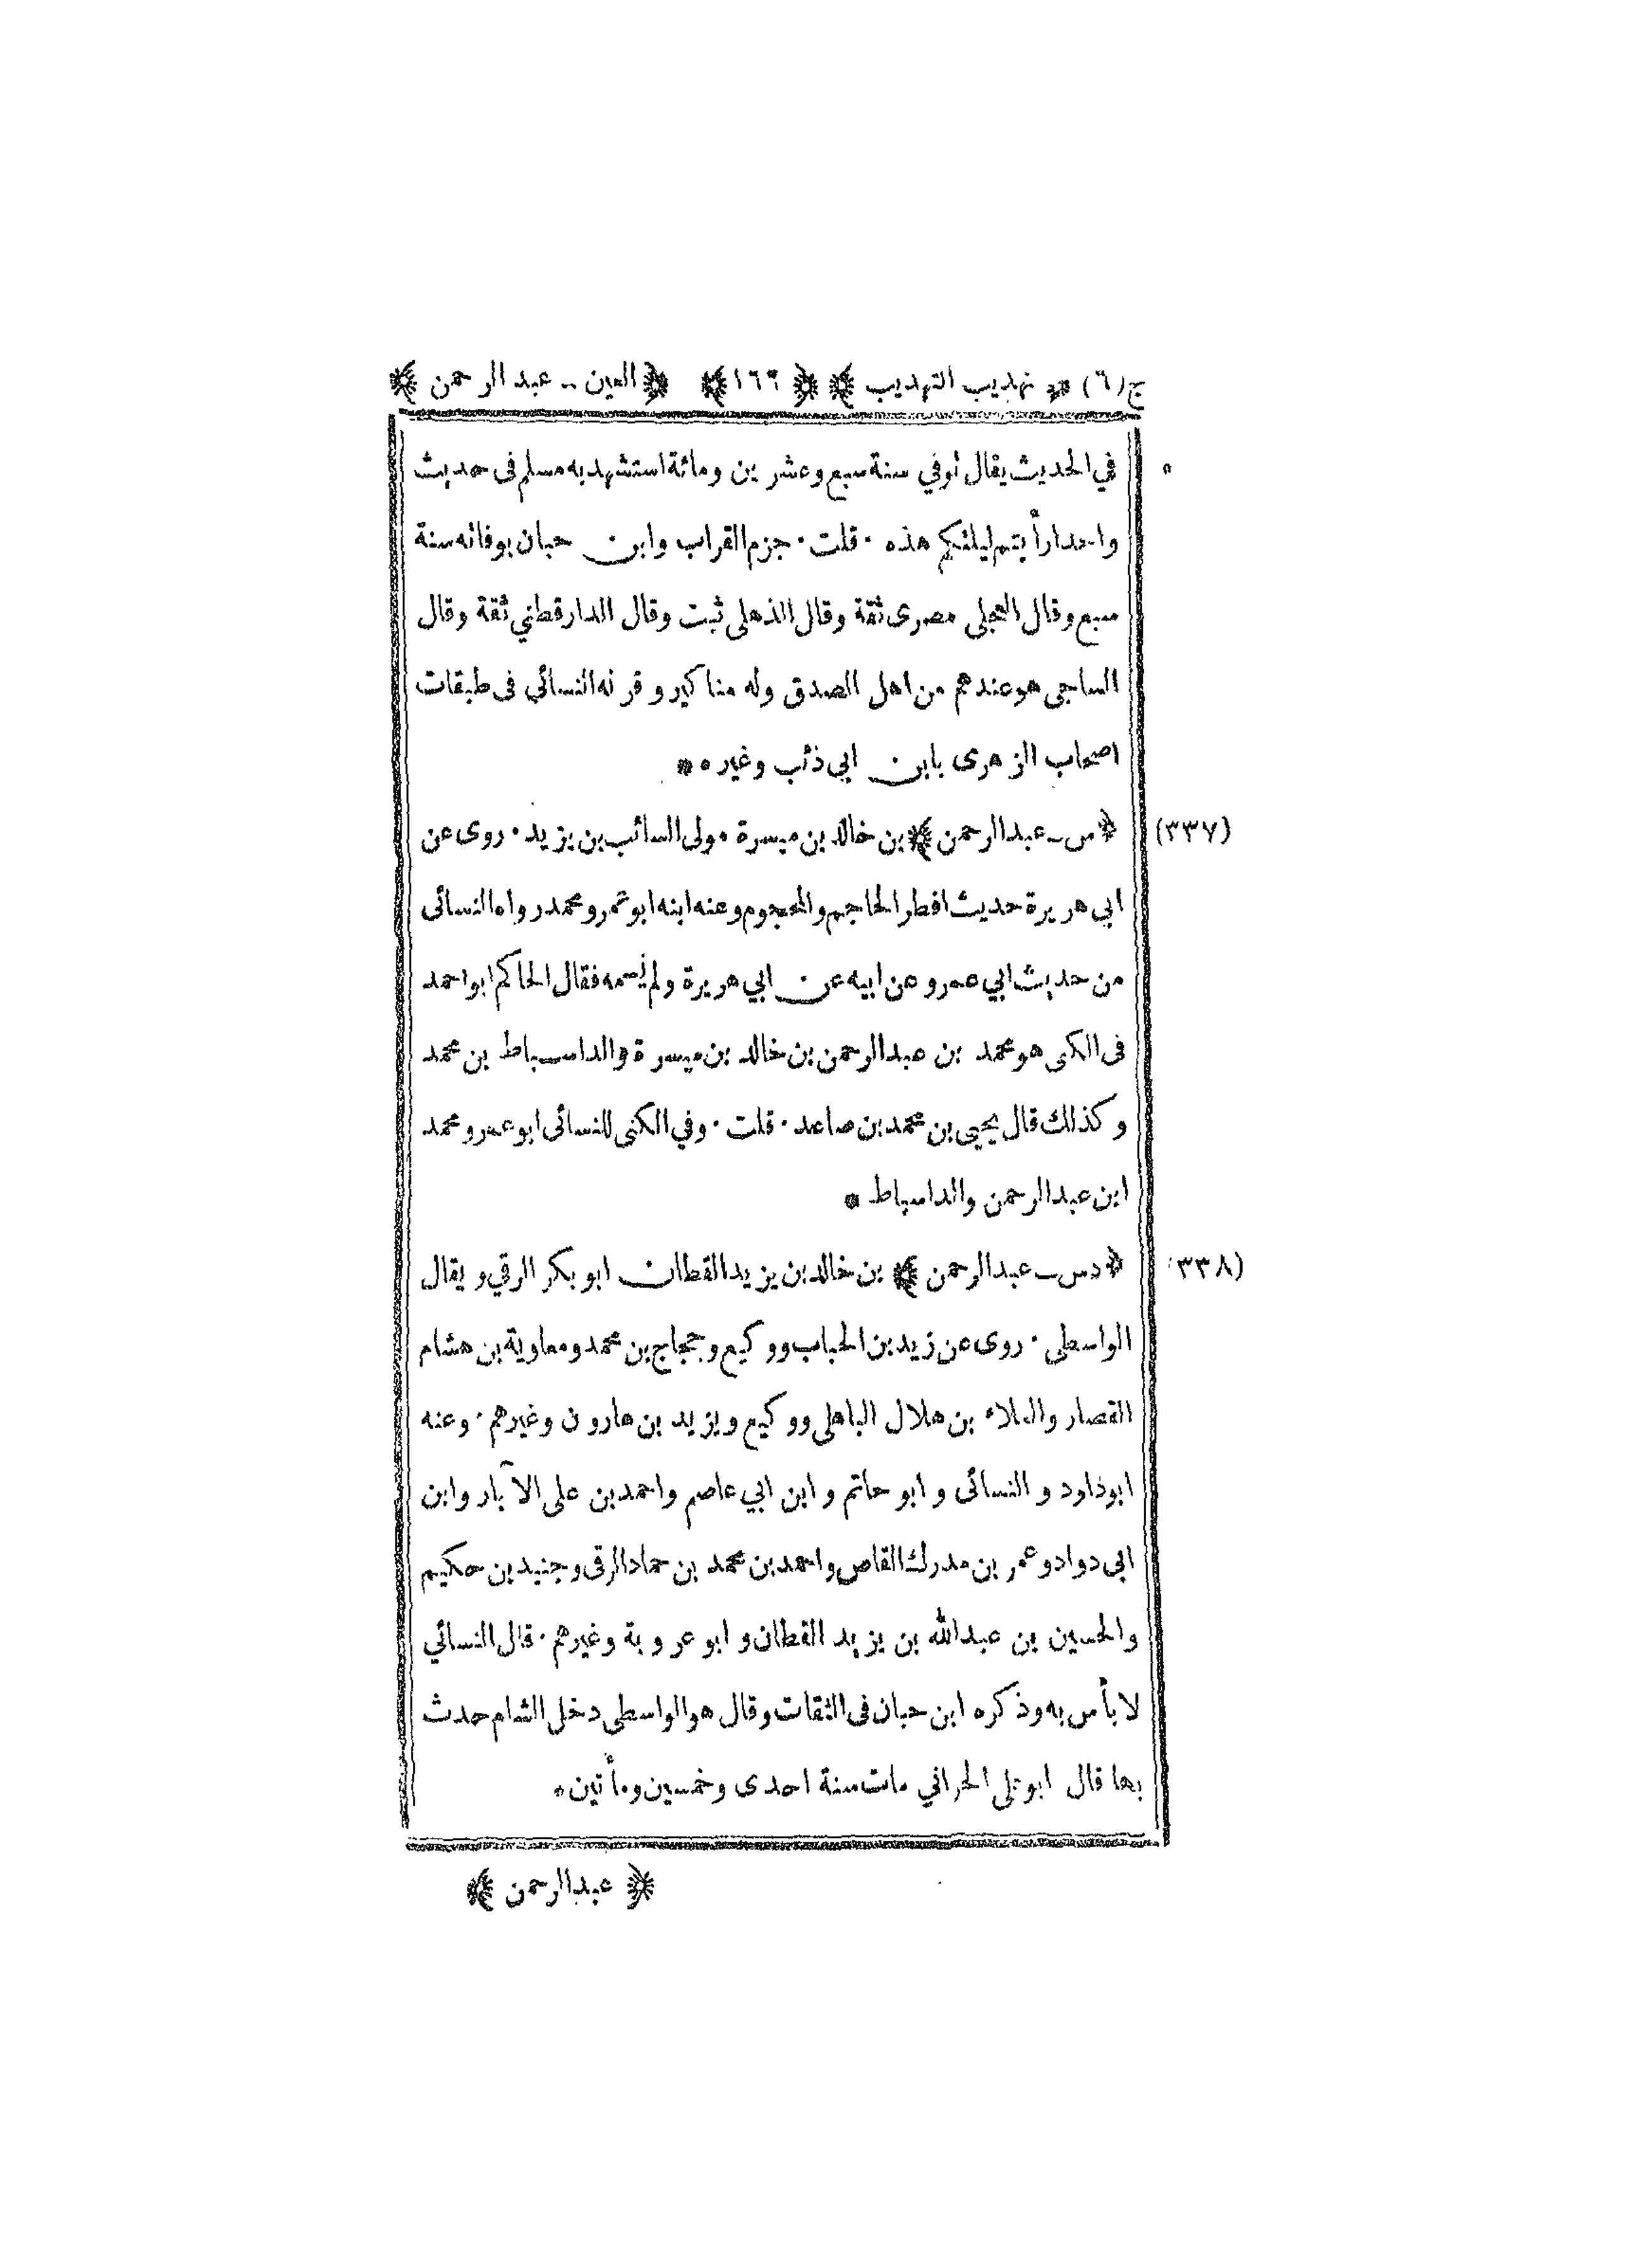 ج(٦) ﴿ تهذيب التهذيب ﴾ ﴿ ١٦٦ ﴾ ﴿ العين -- عبد الرحمن ﴾
في الحديث يقال توفي سنة سبع وعشرين ومائة استشهد به مسلم فى حديث
واحد أرأيتم ليلتكم هذه · قلت · جزم القراب وابن حبان بوفاته سنة
سبع وقال العجلى مصرى ثقة وقال الذهلى ثبت وقال الدارقطني ثقة وقال
الساجى هو عندهم من اهل الصدق وله مناكير وقرنه النسائى فى طبقات
اصحاب الزهرى بابن ابي ذئب وغيره *
(٣٣٧) ﴿ س ــ عبد الرحمن ﴾ بن خالد بن ميسرة مولى السائب بن يزيد · روى عن
ابي هريرة حديث افطر الحاجم والمحجوم وعنه ابنه ابو عمرو محمد رواه النسائى
من حديث ابي عمرو عن ابيه عن ابي هريرة ولم يسمه فقال الحاكم ابو احمد
فى الكنى هو محمد بن عبد الرحمن بن خالد بن ميسرة والد اسباط بن محمد
وكذلك قال يحيى بن محمد بن صاعد · قلت · وفي الكنى للنسائى ابو عمرو محمد
ابن عبد الرحمن والد اسباط *
(٣٣٨) ﴿ دس ــ عبد الرحمن ﴾ بن خالد بن يزيد القطان ابو بكر الرقي ويقال
الواسطى · روى عن زيد بن الحباب ووكيع وحجاج بن محمد ومعاوية بن هشام
القصار والعلاء بن هلال الباهلى ووكيع ويزيد بن هارون وغيرهم · وعنه
ابو داود و النسائى و ابو حاتم و ابن ابي عاصم واحمد بن على الآبار وابن
ابى دواد وعمر بن مدرك القاص واحمد بن محمد بن حماد الرقى وجنيد بن حكيم
والحسين بن عبد الله بن يزيد القطان و ابو عروبة وغيرهم · قال النسائي
لا بأس به وذكره ابن حبان فى الثقات وقال هو الواسطى دخل الشام حدث
بها قال ابو على الحراني مات سنة احدى وخمسين ومأتين *
﴿ عبد الرحمن ﴾